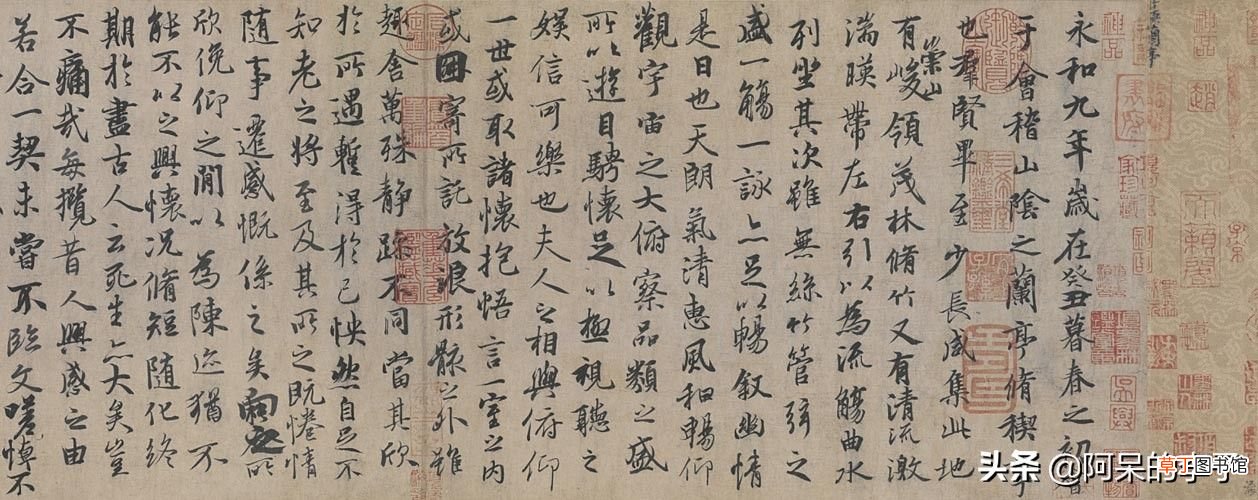 永和九年歲在癸丑暮春之初會
于會稽山陰之蘭亭脩稧事
也羣賢畢至少長咸集此地
有崇山峻領茂林脩竹又有清流激
湍暎帶左右引以為流觴曲水
列坐其次雖無絲竹管弦之
盛一觴一詠亦足以暢敘幽情
是日也天朗氣清惠風和暢仰
觀宇宙之大俯察品類之盛
所以遊目騁懷足以極視聽之
娛信可樂也夫人之相與俯仰
一世或取諸懷抱悟言一室之內
或因寄所託放浪形骸之外雖
趣舍萬殊靜躁不同當其欣
於所遇暫得於己怏然自足不
知老之將至及其所之既惓情
隨事遷感慨係之矣向之所
欣俛仰之閒以為陳迹猶不
能不以之興懷況脩短隨化終
期於盡古人云死生亦大矣豈
不痛哉每攬昔人興感之由
若合一契未嘗不臨文嗟悼不
神品
神品
趙
子京
头条 @阿呆的
草丁图书馆